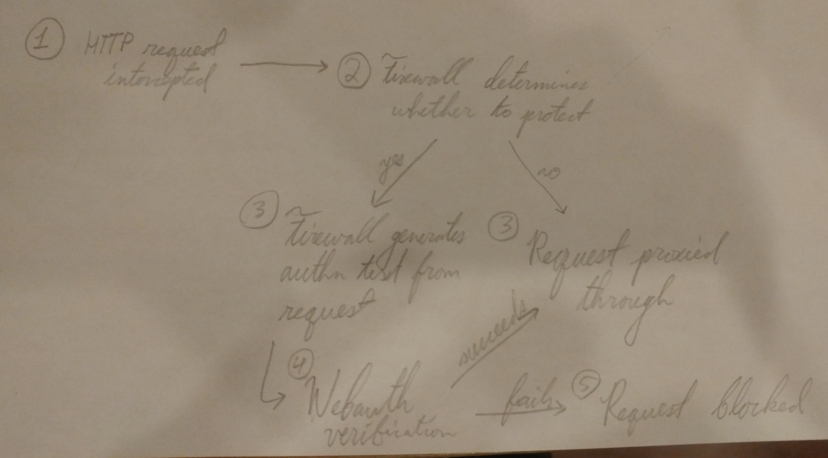 ① HTTP request
intercepted
② Firewall determines
whether to protect
yes
no
③ Firewall generates
authn text from
request
③ Request proxied
through
④ Webauth
verification
succeeds
fails
⑤ Request blocked